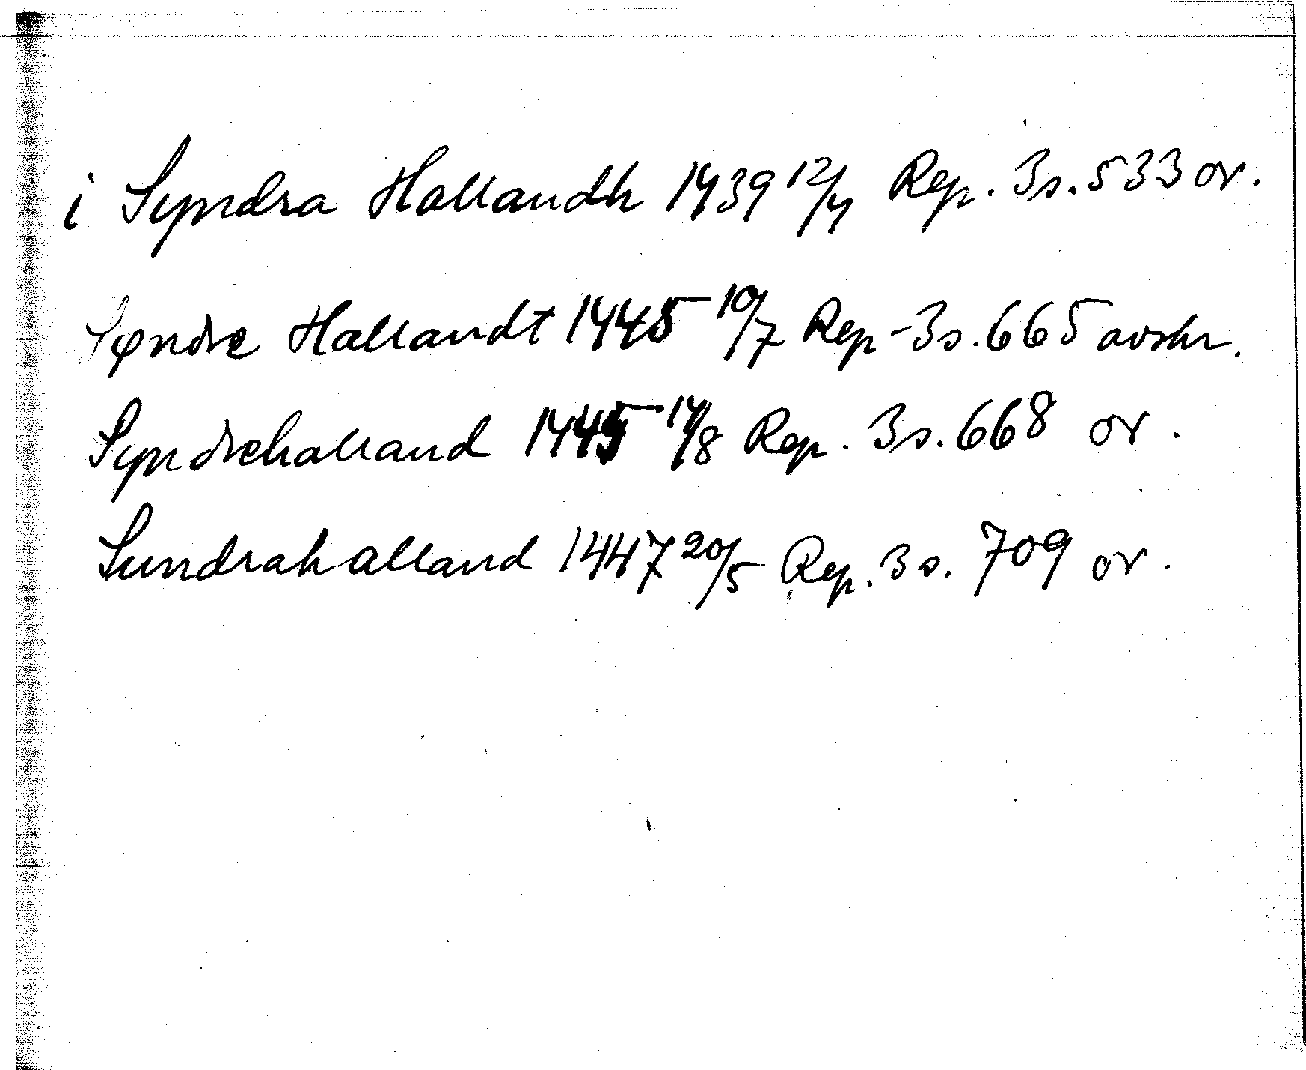 i Syndra Hallandh 1439 12/4 Rep. 3 s. 533 or.
Søndre Hallandt 1445 10/7 Rep. 3 s. 665 avskr.
Syndrehalland 1445 14/8 Rep. 3 s. 668 or.
Sundrahalland 1447 20/5 Rep. 3 s. 709 or.